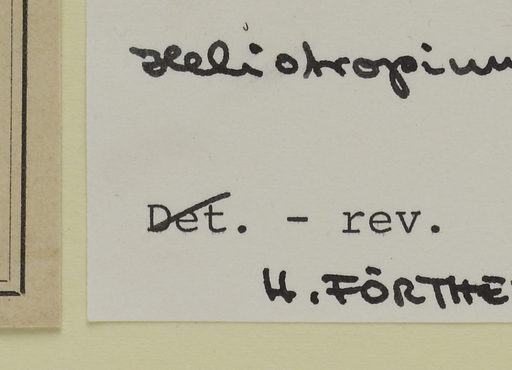 Heliotropium
Det. - rev.
H. FÖRTHE